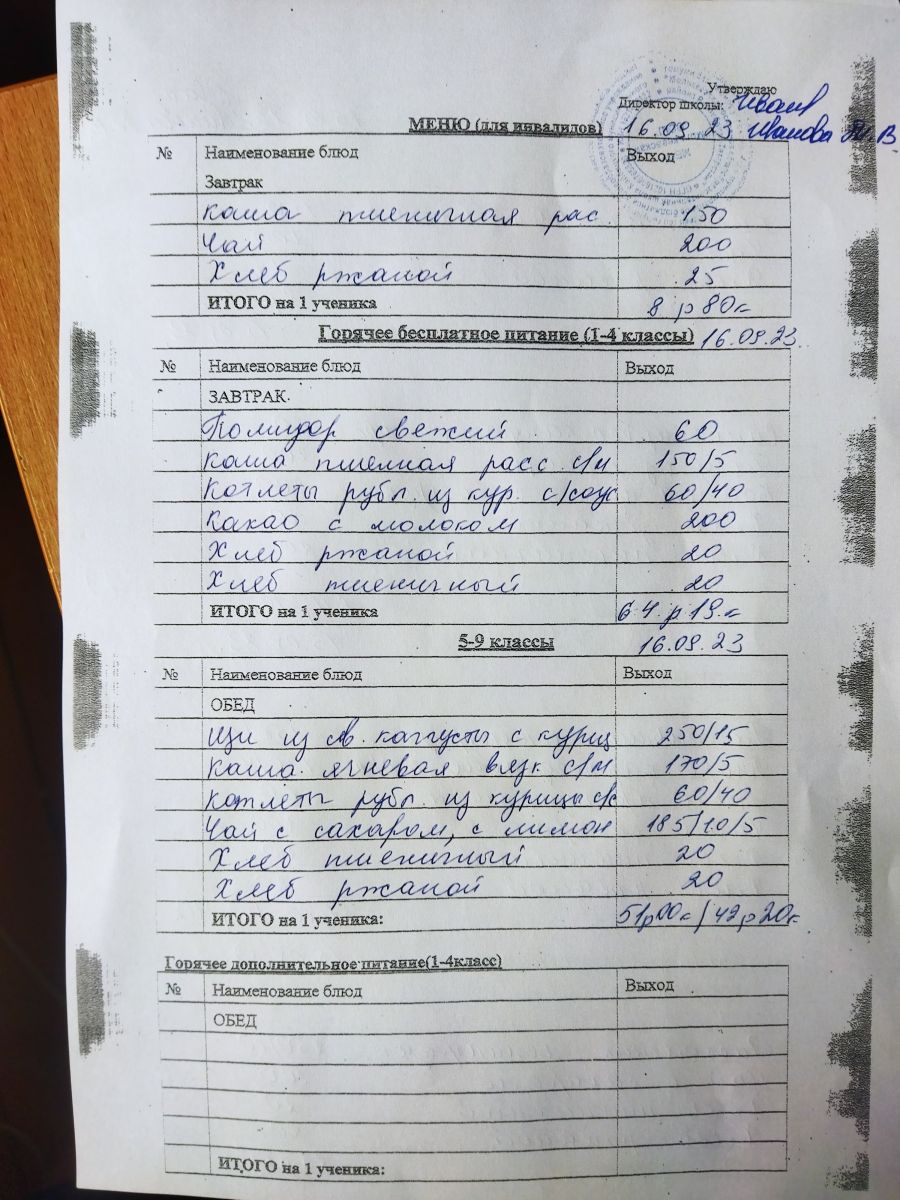 Утверждаю
Директор школы: Иванова
МЕНЮ (для инвалидов) 16.09.23 Иванова В
№ Наименование блюд Выход
Завтрак
Каша пшеничная рас. 150
Чай 200
Хлеб ржаной 25
ИТОГО на 1 ученика 8р 80к
Горячее бесплатное питание (1-4 классы) 16.09.23.
№ Наименование блюд Выход
ЗАВТРАК
Помидор свежий 60
Каша пшенная расс. с/м 150/5
Котлеты рубл. из кур. с/соус 60/40
Какао с молоком 200
Хлеб ржаной 20
Хлеб пшеничный 20
ИТОГО на 1 ученика 64 р 19 к
5-9 классы 16.09.23
№ Наименование блюд Выход
ОБЕД
Щи из св. капусты с куриц 250/15
Каша ячневая вязк с/м 170/5
Котлеты рубл. из курицы с/с 60/40
Чай с сахаром, с лимон 185/10/5
Хлеб пшеничный 20
Хлеб ржаной 20
ИТОГО на 1 ученика: 51р00к/42р20к
Горячее дополнительное питание(1-4класс)
№ Наименование блюд Выход
ОБЕД
ИТОГО на 1 ученика: